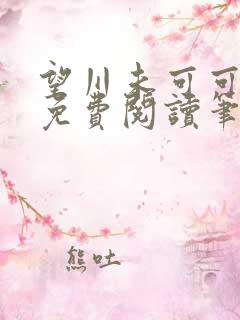 望川未可可
免費閱讀筆
熊吐